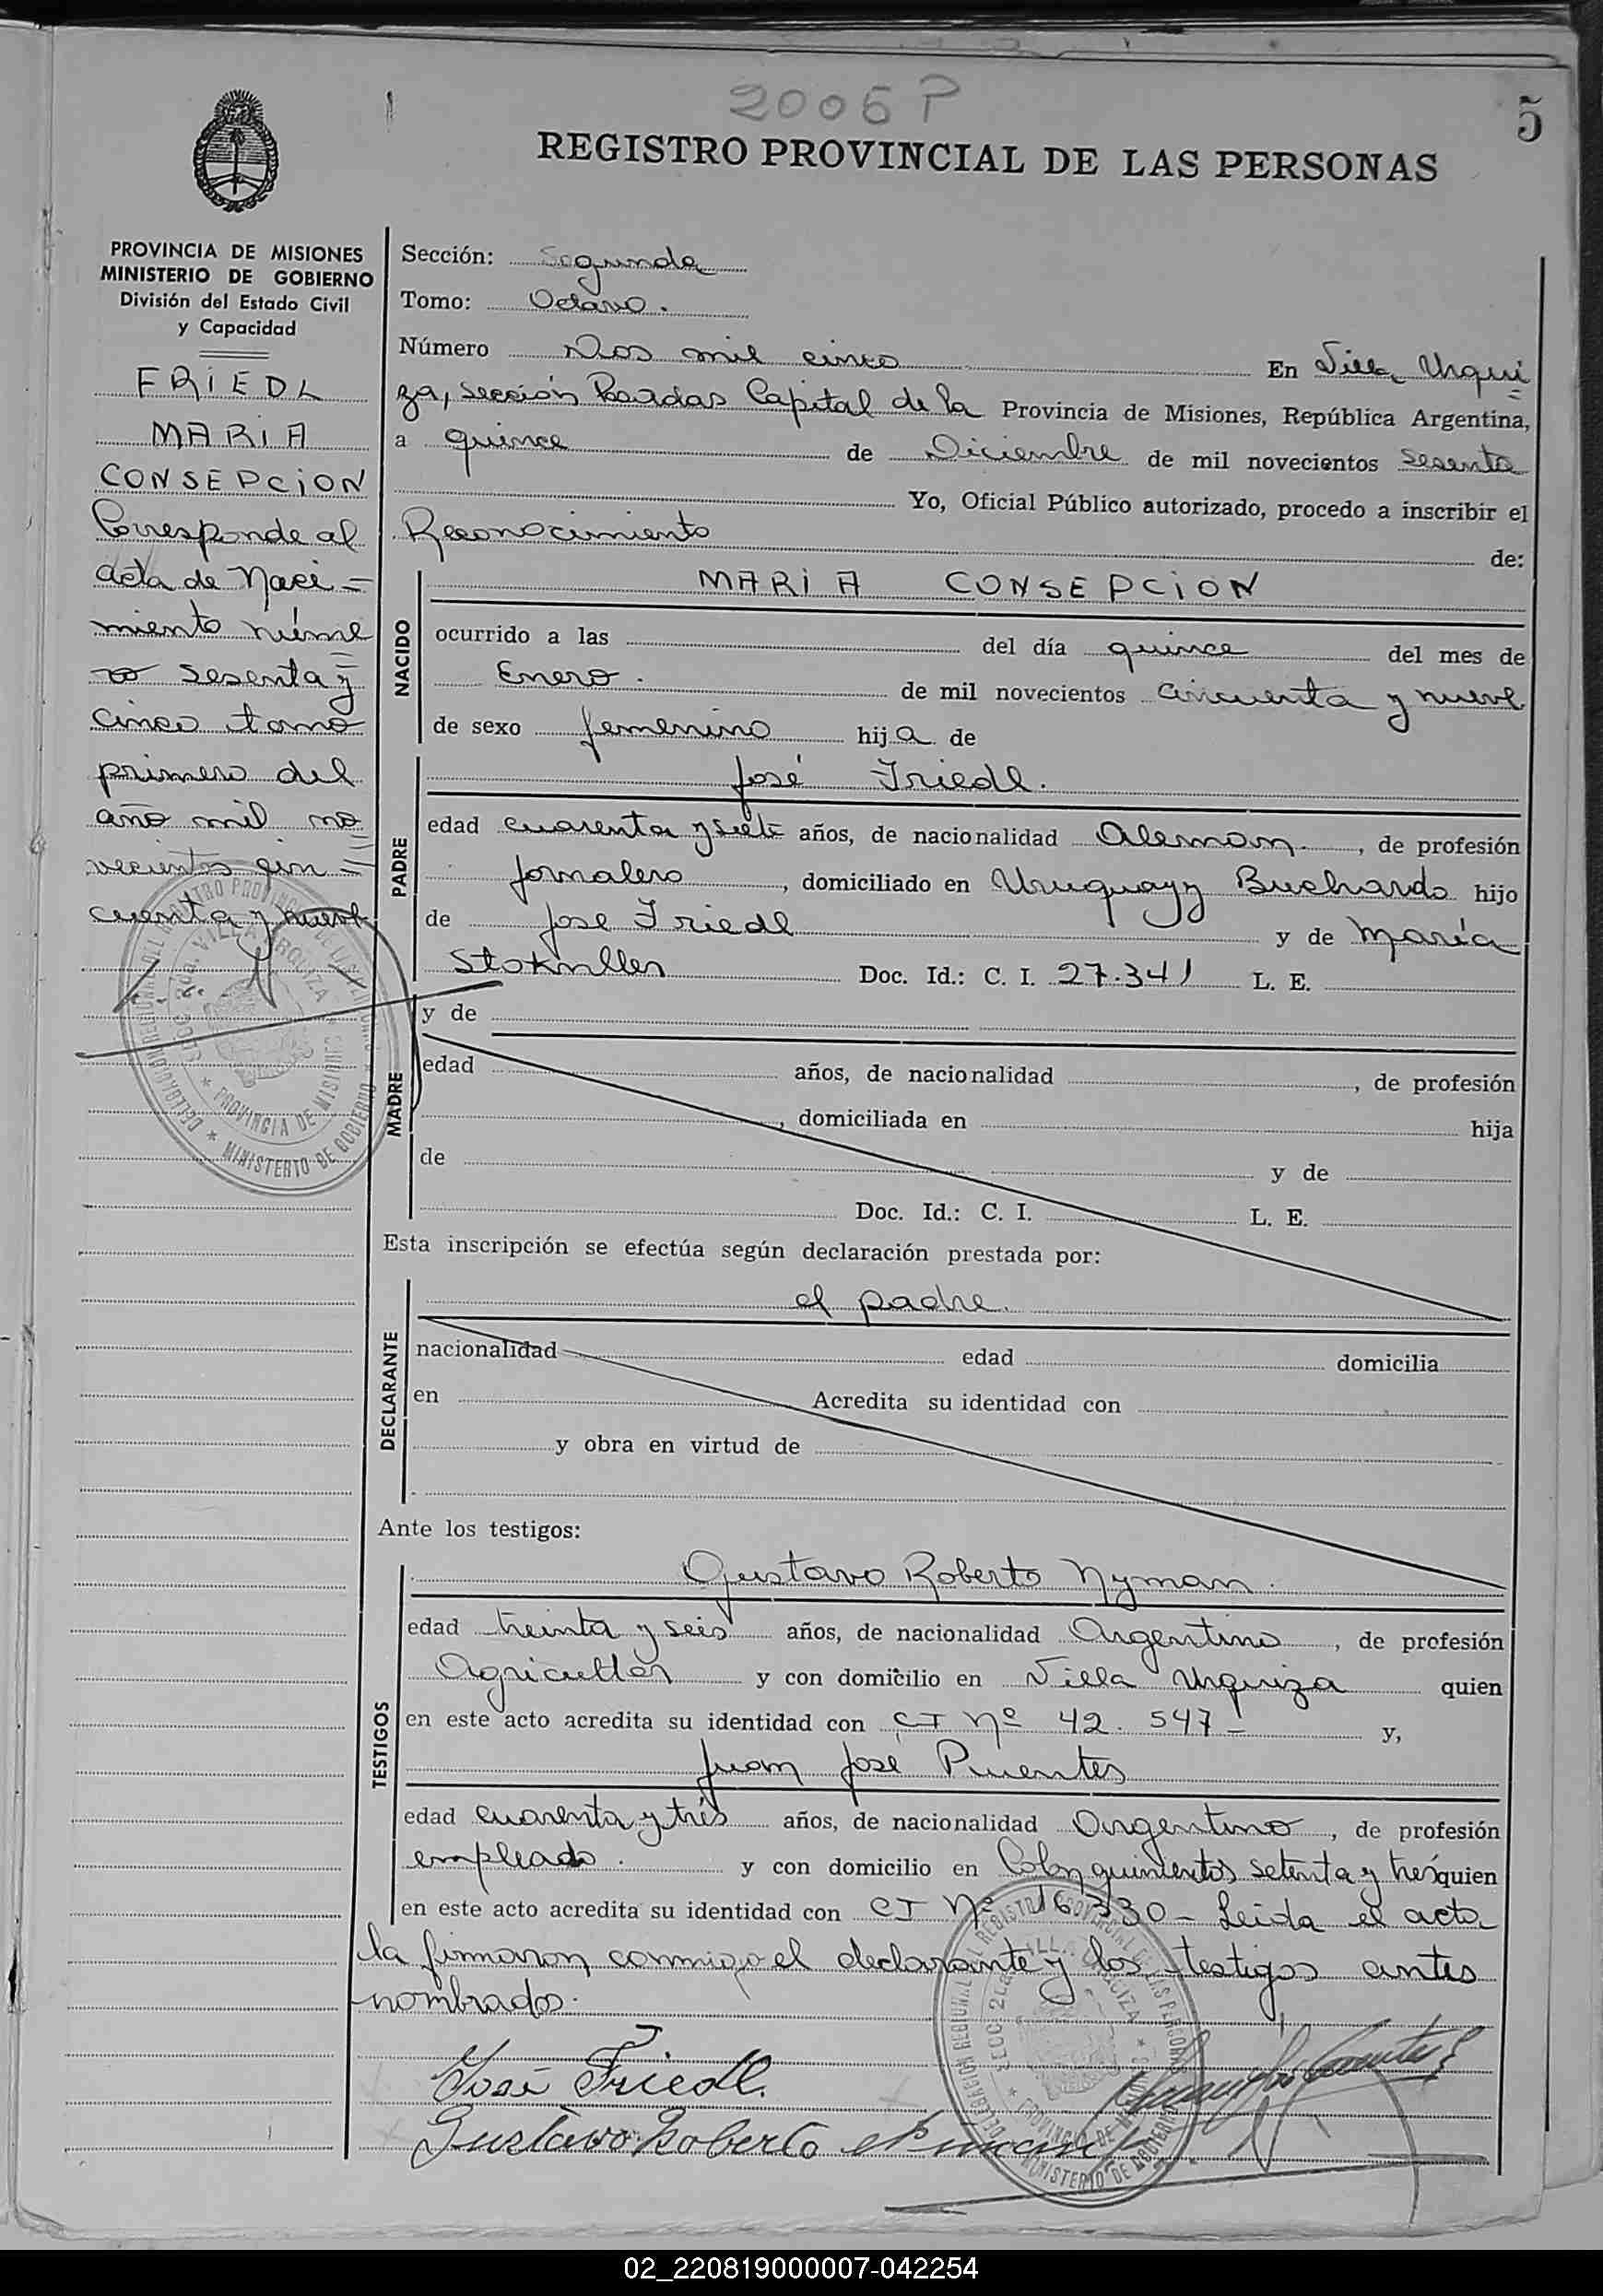 2005 P
5
REGISTRO PROVINCIAL DE LAS PERSONAS
PROVINCIA DE MISIONES
MINISTERIO DE GOBIERNO
División del Estado Civil
y Capacidad
FRIEDL
MARIA
CONSEPCION
Corresponde al
acta de Naci=
miento núme
ro sesenta y
cinco tomo
primero del
año mil no
vecientos cin=
cuenta y nueve
Sección: Segunda
Tomo: Octavo.
Número Dos mil cinco En Villa Urqui
za, sección Posadas Capital de la Provincia de Misiones, República Argentina,
a quince de Diciembre de mil novecientos sesenta
Yo, Oficial Público autorizado, procedo a inscribir el
Reconocimiento de:
NACIDO
MARIA CONSEPCION
ocurrido a las del día quince del mes de
Enero. de mil novecientos cincuenta y nueve
de sexo femenino hija de
PADRE
José Friedl.
edad cuarenta y siete años, de nacionalidad Aleman, de profesión
jornalero, domiciliado en Uruguay y Buchardo hijo
de Jose Friedl y de María
Doc. Id.: C. I. 27.341 L. E.
MADRE
y de
edad años, de nacionalidad , de profesión
, domiciliada en hija
de y de
Doc. Id.: C. I. L. E.
Esta inscripción se efectúa según declaración prestada por:
DECLARANTE
el padre.
nacionalidad edad domicilia
en Acredita su identidad con
y obra en virtud de
Ante los testigos:
TESTIGOS
Gustavo Roberto Nyman.
edad treinta y seis años, de nacionalidad Argentino, de profesión
Agricultor y con domicilio en Villa Urquiza quien
en este acto acredita su identidad con CI Nº 42.547 y,
Juan José Puentes
edad cuarenta y tres años, de nacionalidad Argentino, de profesión
empleado. y con domicilio en Colon quinientos setenta y tres quien
en este acto acredita su identidad con CI Nº 16330 - Leida el acta
la firmaron conmigo el declarante y los testigos antes
nombrados.
José Friedl.
Gustavo Roberto Nyman
02_220819000007-042254